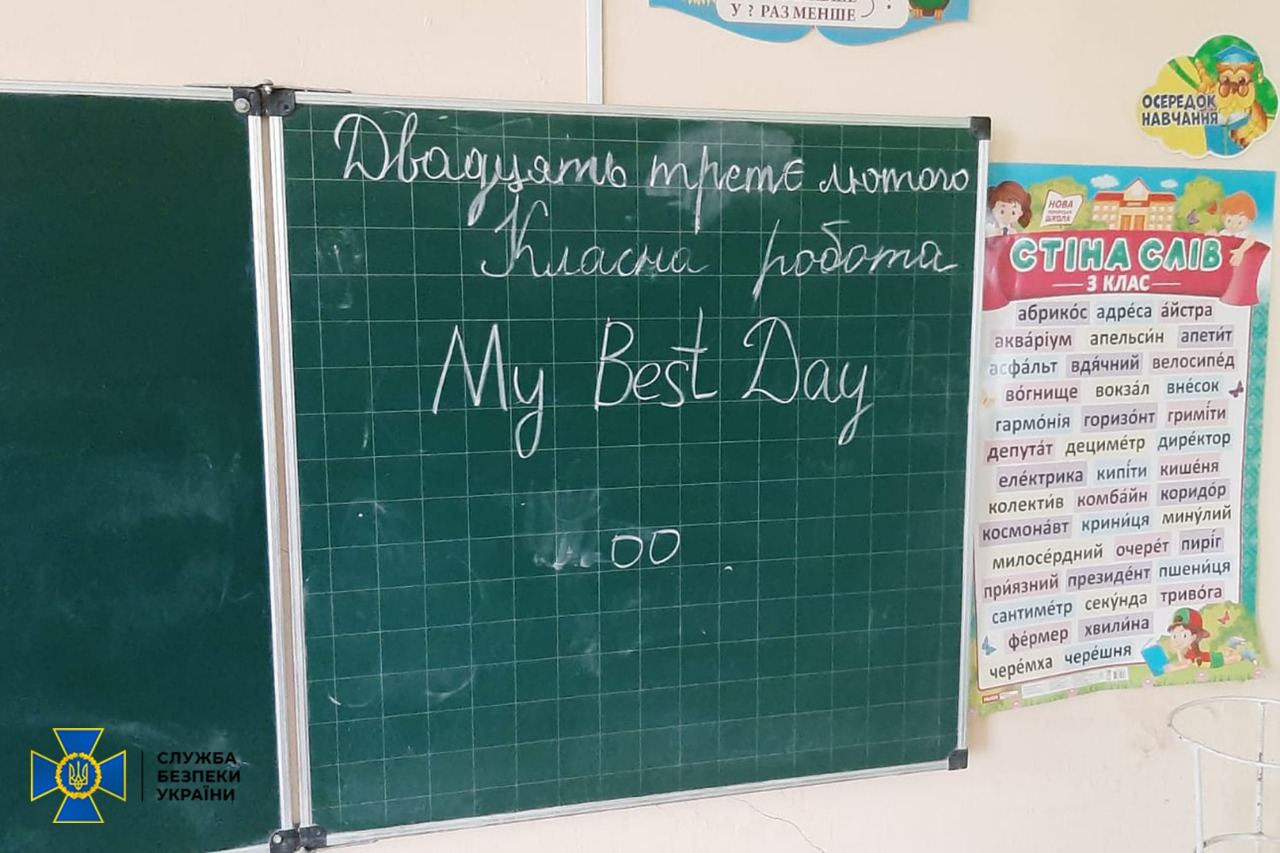 У ? РАЗ МЕНШЕ
ОСЕРЕДОК
НАВЧАННЯ
Двадцять третє лютого
Класна робота
My Best Day
00
НОВА
УКРАЇНСЬКА
ШКОЛА
СТІНА СЛІВ
3 КЛАС
абрико́с адре́са а́йстра
аква́ріум апельси́н апети́т
асфа́льт вдя́чний велосипе́д
во́гнище вокза́л вне́сок
гармо́нія горизо́нт гримі́ти
депута́т дециме́тр дире́ктор
еле́ктрика кипі́ти кише́ня
колекти́в комба́йн коридо́р
космона́вт крини́ця мину́лий
милосе́рдний очере́т пирі́г
при́язний президе́нт пшени́ця
сантиме́тр секу́нда триво́га
фе́рмер хвили́на
чере́мха чере́шня
СЛУЖБА
БЕЗПЕКИ
УКРАЇНИ